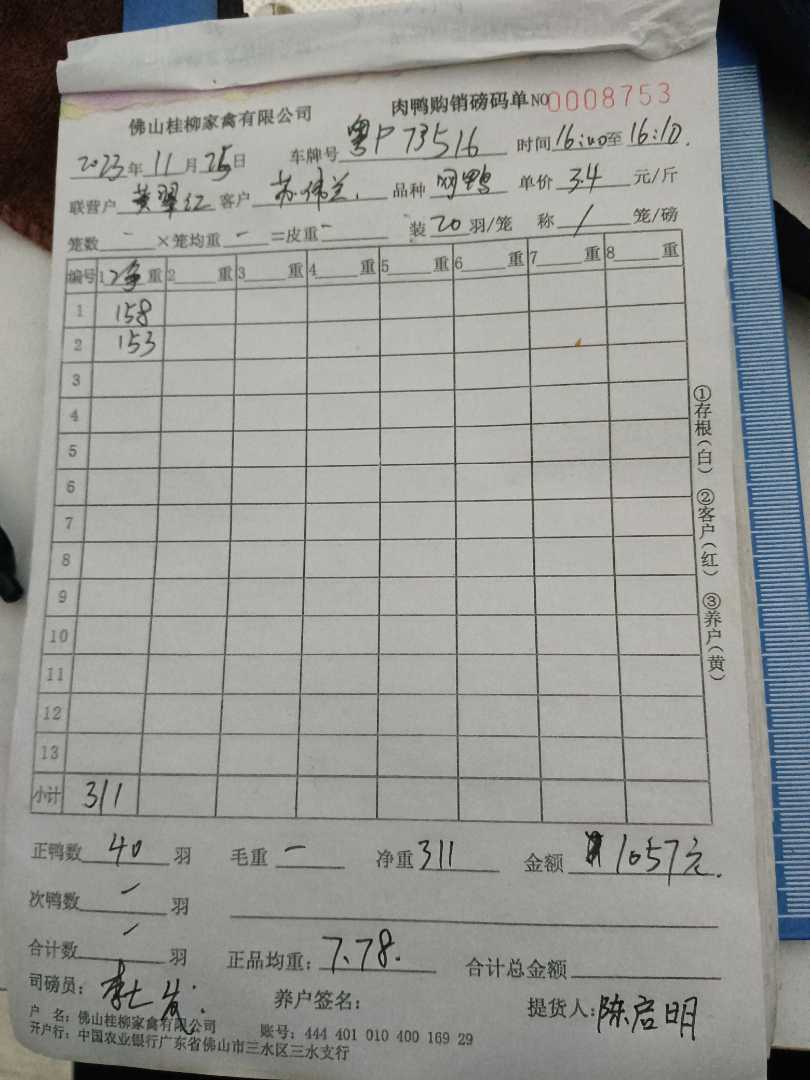 佛山桂柳家禽有限公司 肉鸭购销磅码单 NO0008753
2023年11月25日 车牌号 粤P73516 时间 16:00至16:10.
联营户 黄翠红 客户 苏伟兰. 品种 网鸭 单价 3.4 元/斤
笼数 - ×笼均重 - =皮重 - 装 20 羽/笼 称 / 笼/磅
编号 1净重 2 重 3 重 4 重 5 重 6 重 7 重 8 重
1 158
2 153
3
4
5
6
7
8
9
10
11
12
13
小计 311
正鸭数 40 羽 毛重 - 净重 311 金额 1057元.
次鸭数 - 羽
合计数 - 羽 正品均重: 7.78. 合计总金额
司磅员: 养户签名: 提货人: 陈启明
户 名: 佛山桂柳家禽有限公司 账号: 444 401 010 400 169 29
开户行: 中国农业银行广东省佛山市三水区三水支行
①存根(白) ②客户(红) ③养户(黄)